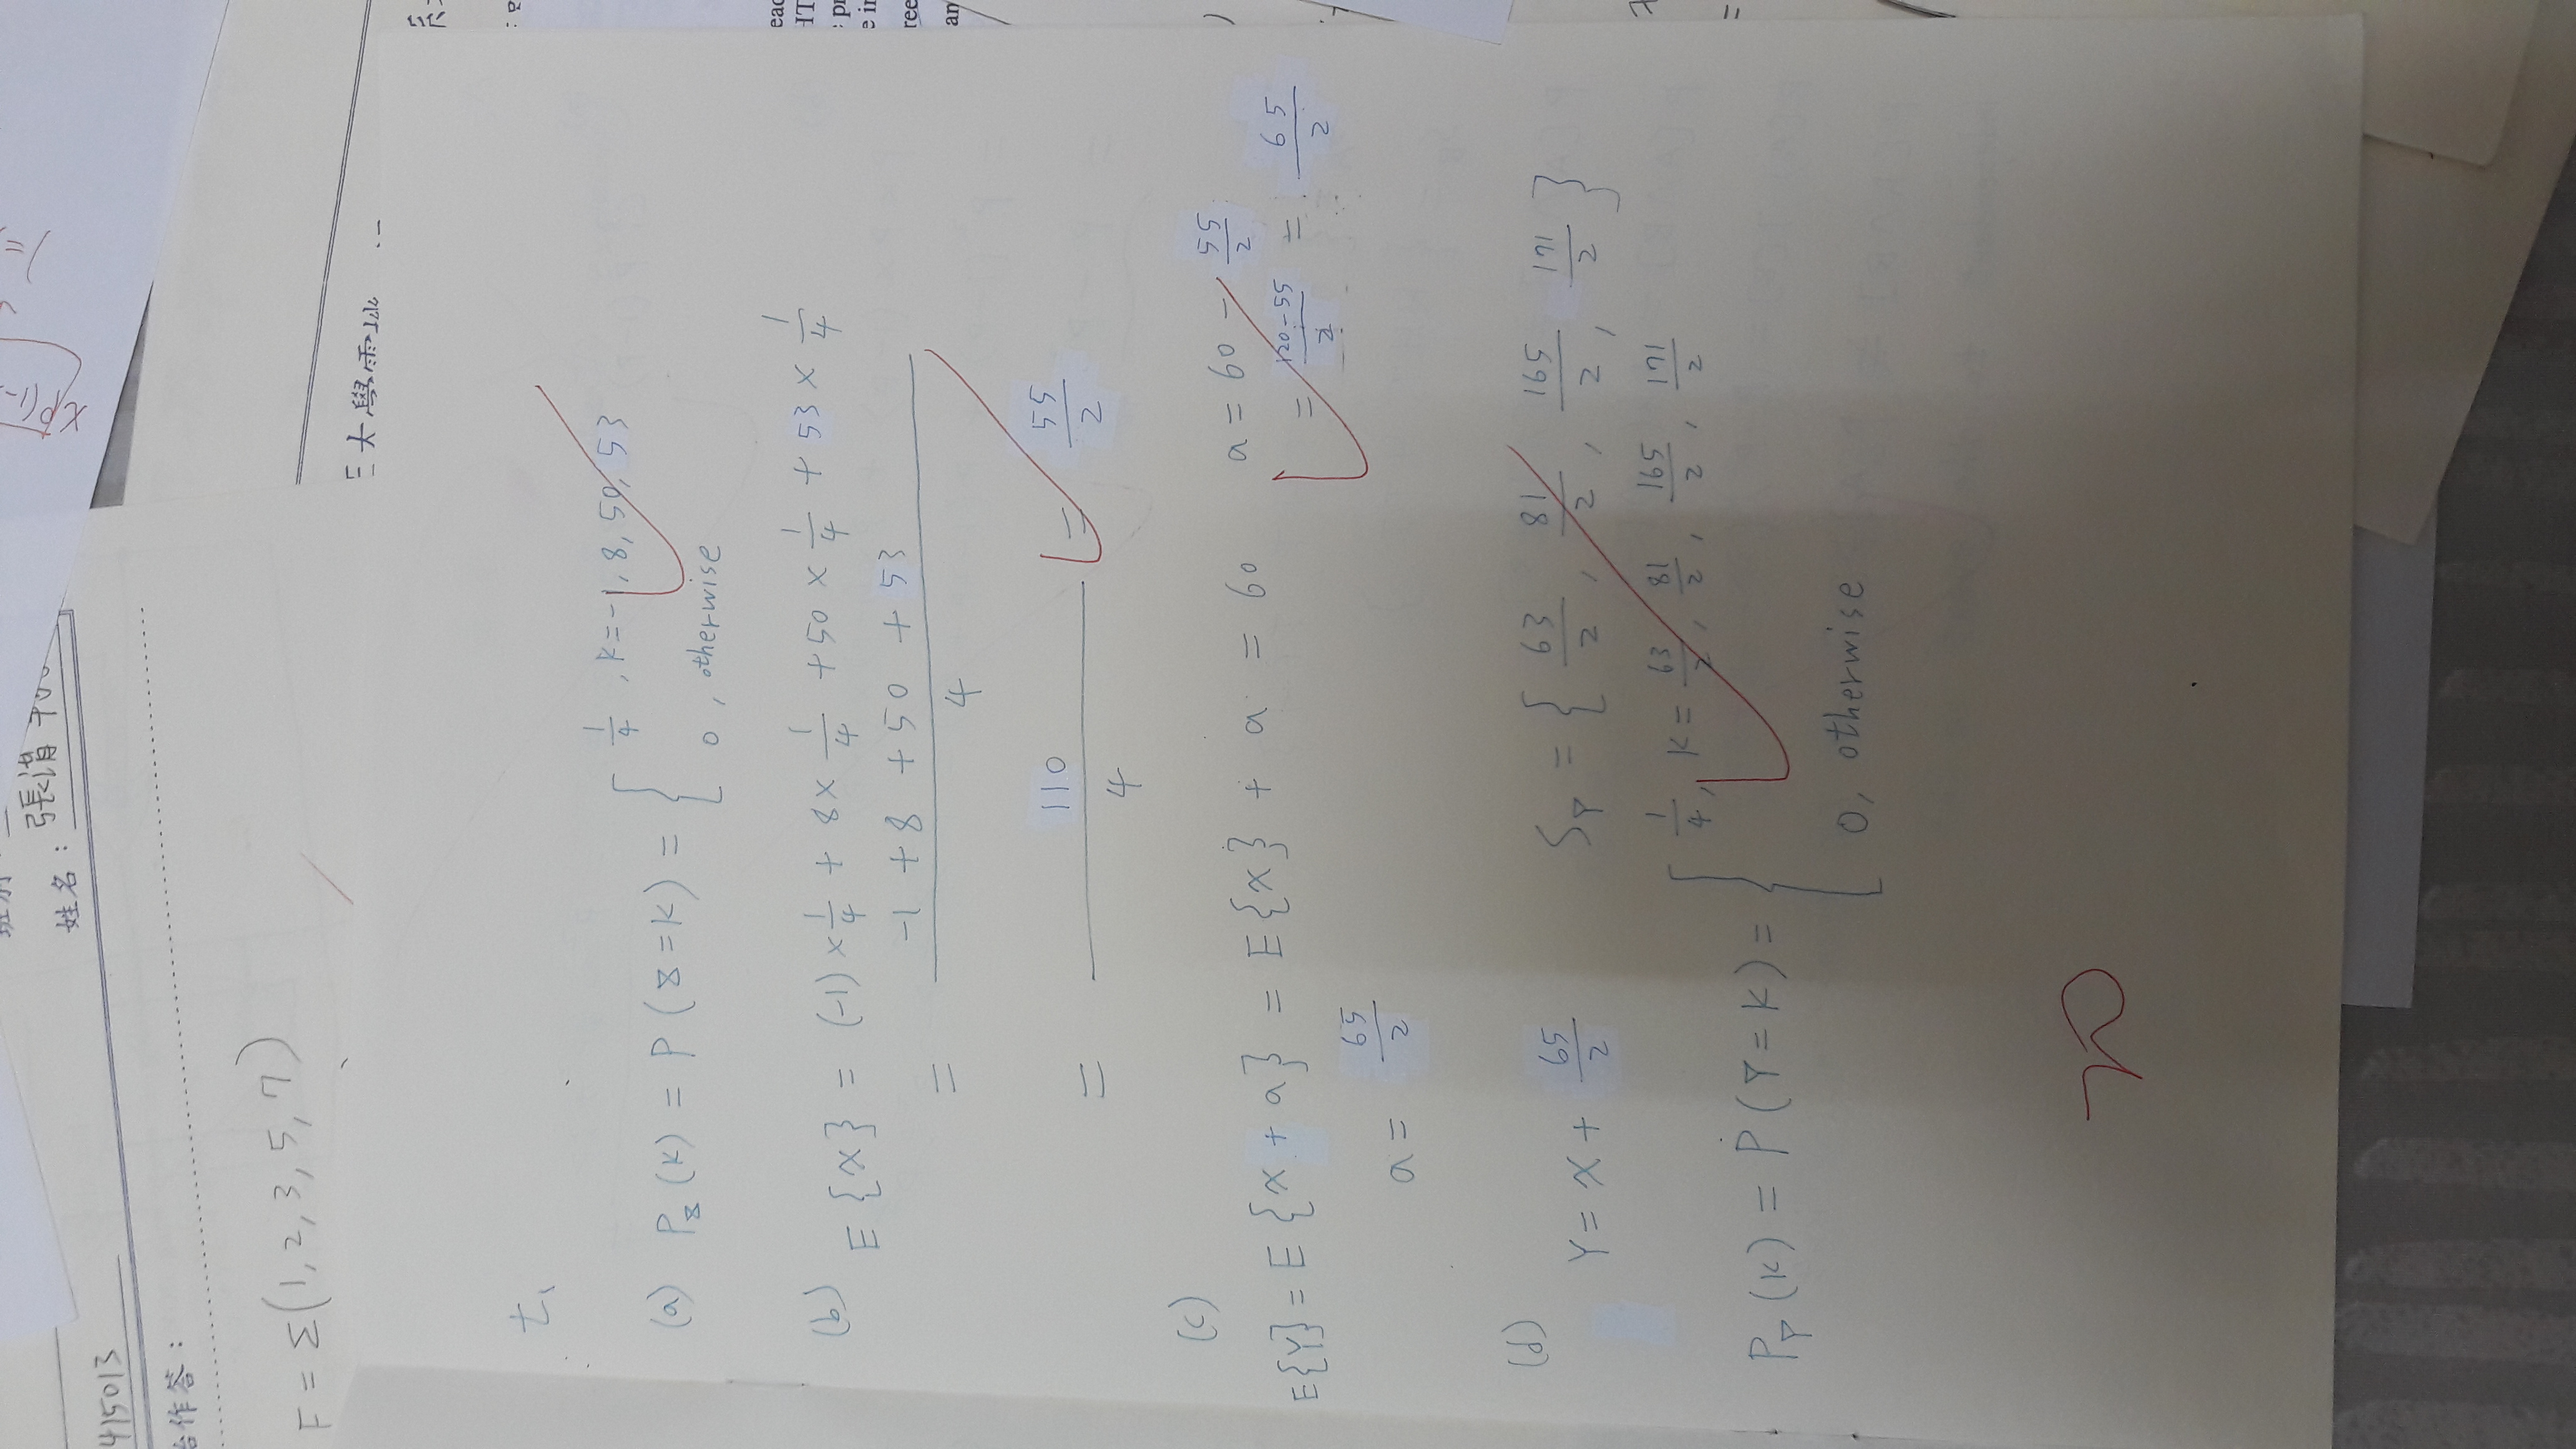 姓名：張清
415013
作答：
F = Σ(1, 2, 3, 5, 7)
七、
(a) P_X(K) = P(X=K) = { 1/4, K=-1, 8, 50, 53
0, otherwise
(b) E{X} = (-1)×1/4 + 8×1/4 + 50×1/4 + 53×1/4
= (-1+8+50+53)/4
= 110/4 = 55/2
(c)
E{Y} = E{X+a} = E{X} + a = 60
a = 60 - 55/2
= (120-55)/2 = 65/2
a = 65/2
(d)
Y = X + 65/2
S_Y = {63/2, 81/2, 165/2, 171/2}
P_Y(K) = P(Y=K) = { 1/4, K = 63/2, 81/2, 165/2, 171/2
0, otherwise
70